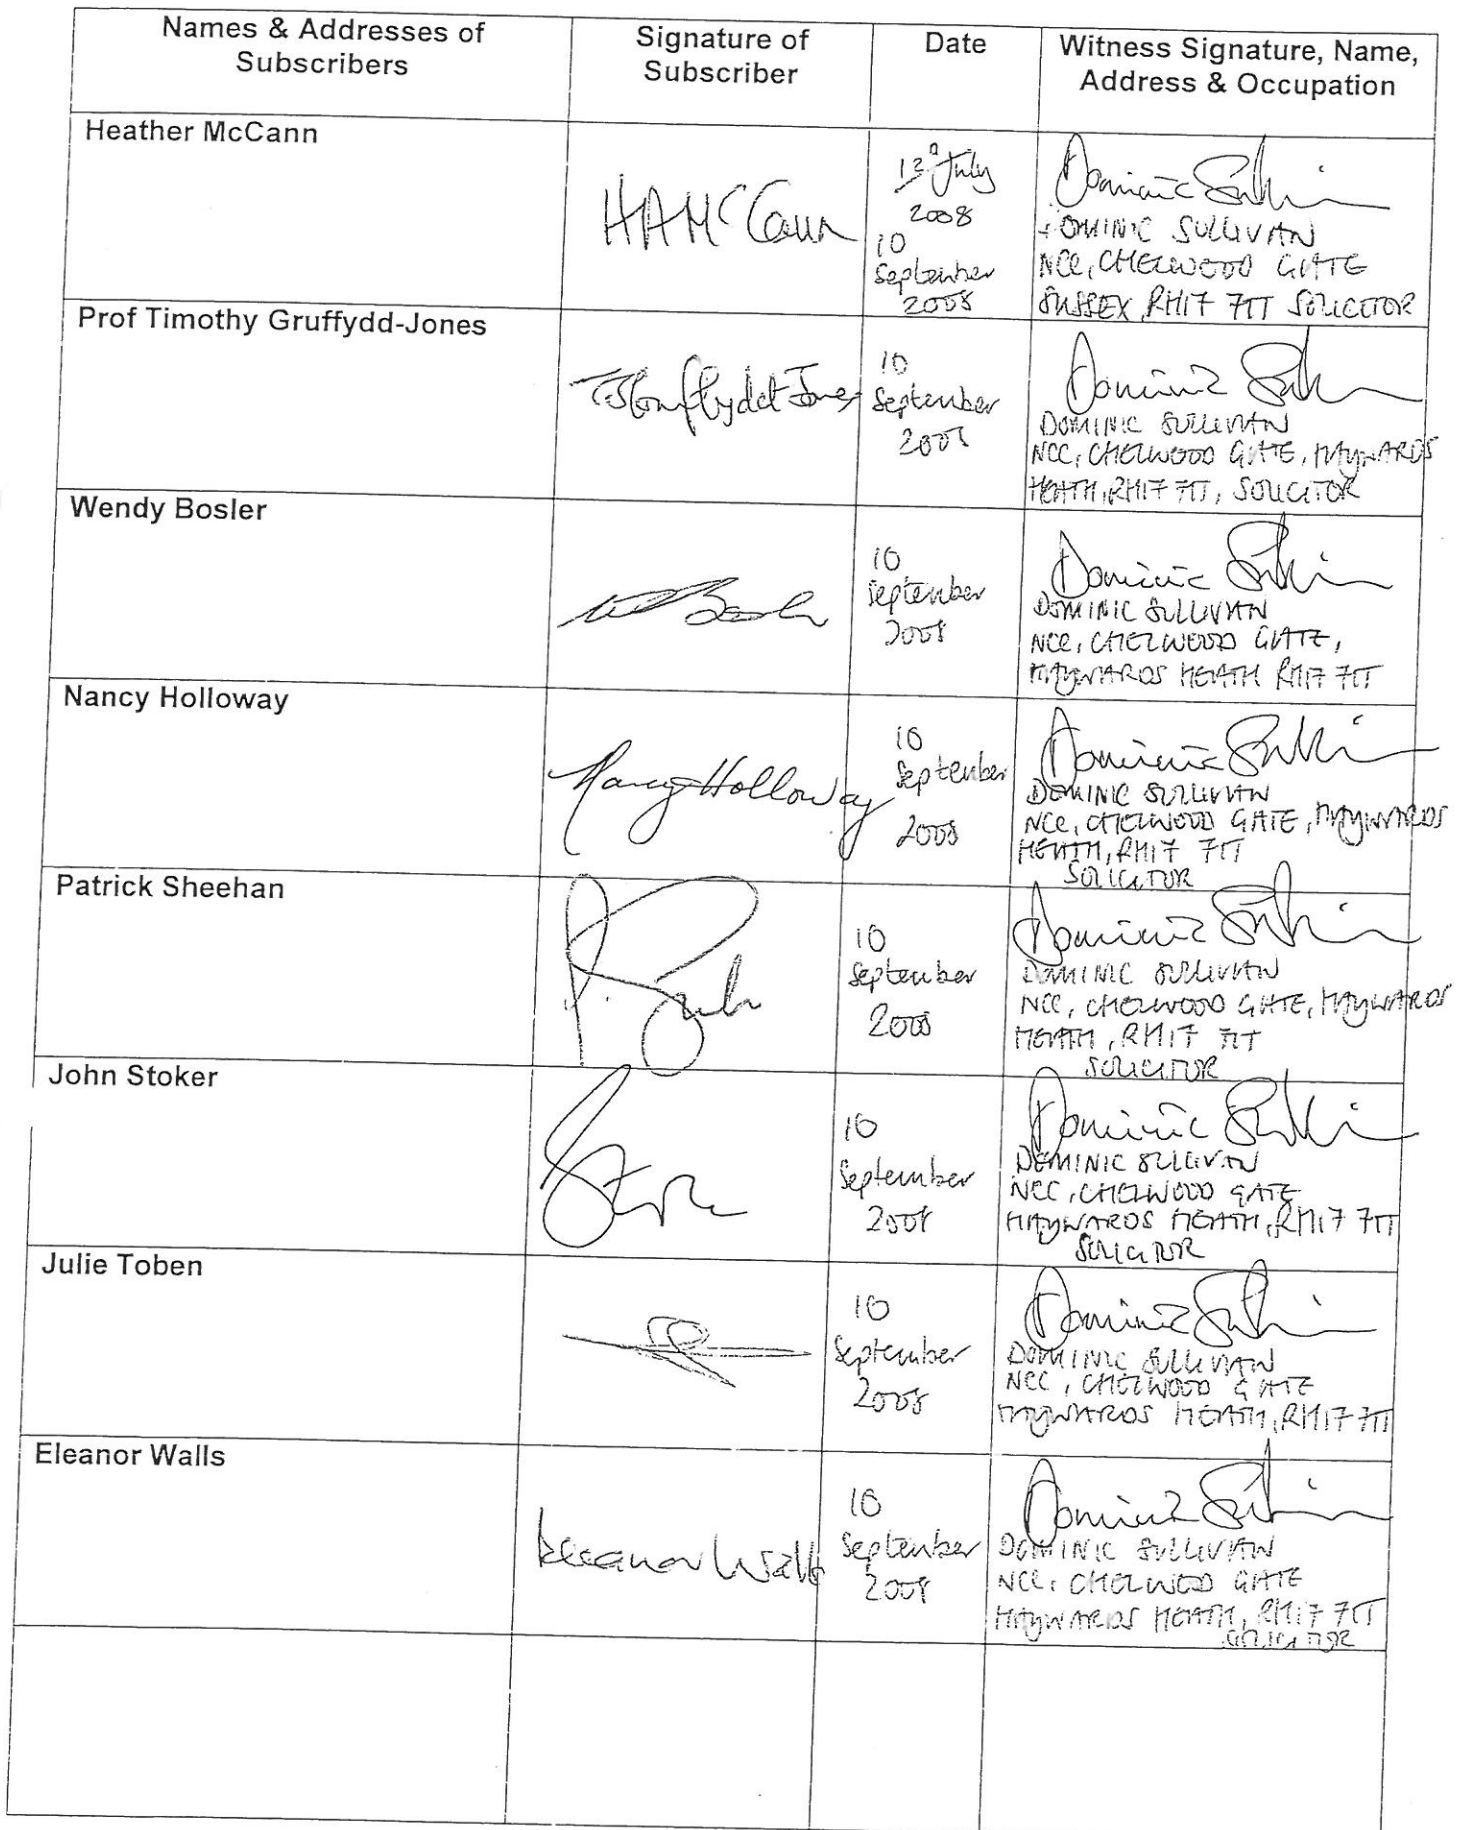 Names & Addresses of
Subscribers
Signature of
Subscriber
Date
Witness Signature, Name,
Address & Occupation
Heather McCann
HAMcCann
12 July
2008
10
September
2008
Dominic Sullivan
DOMINIC SULLIVAN
NCC, CHELWOOD GATE
SUSSEX, RH17 7TT SOLICITOR
Prof Timothy Gruffydd-Jones
TJGruffydd Jones
10
September
2008
Dominic Sullivan
DOMINIC SULLIVAN
NCC, CHELWOOD GATE, HAYWARDS
HEATH, RH17 7TT, SOLICITOR
Wendy Bosler
W Bosler
10
September
2008
Dominic Sullivan
DOMINIC SULLIVAN
NCC, CHELWOOD GATE,
HAYWARDS HEATH RH17 7TT
Nancy Holloway
Nancy Holloway
10
September
2008
Dominic Sullivan
DOMINIC SULLIVAN
NCC, CHELWOOD GATE, HAYWARDS
HEATH, RH17 7TT
SOLICITOR
Patrick Sheehan
10
September
2008
Dominic Sullivan
DOMINIC SULLIVAN
NCC, CHELWOOD GATE, HAYWARDS
HEATH, RH17 7TT
SOLICITOR
John Stoker
10
September
2008
Dominic Sullivan
DOMINIC SULLIVAN
NCC, CHELWOOD GATE
HAYWARDS HEATH, RH17 7TT
SOLICITOR
Julie Toben
10
September
2008
Dominic Sullivan
DOMINIC SULLIVAN
NCC, CHELWOOD GATE
HAYWARDS HEATH, RH17 7TT
Eleanor Walls
Eleanor Walls
10
September
2008
Dominic Sullivan
DOMINIC SULLIVAN
NCC, CHELWOOD GATE
HAYWARDS HEATH, RH17 7TT
SOLICITOR